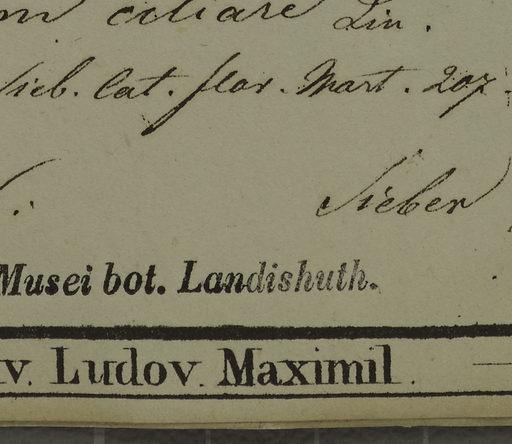 ciliare Lin.
Sieb. Cat. flor. Mart. 207.
Sieber
Musei bot. Landishuth.
v. Ludov. Maximil.